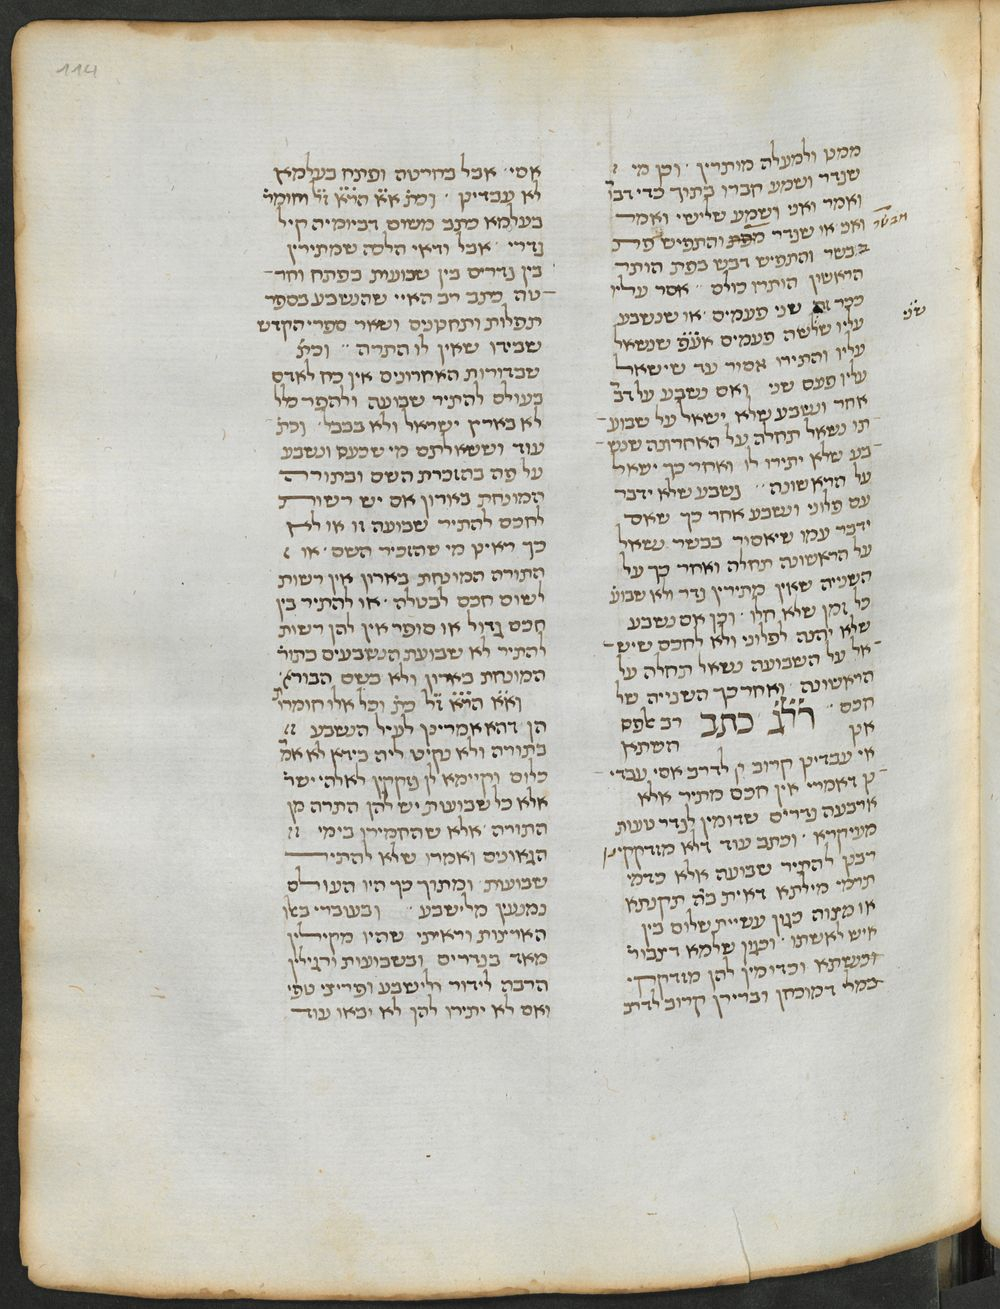 114
ממנו ולמעלה מותרין · וכן מי
שנדר ושמע חברו בתוך כדי דבו'
ואמר ואני ושמע שלישי ואמר
ואני או שנדר מפת והתפיש פת
בבשר והתפיש דבש בפת הותר
הראשון הותרו כולם · אסר עליו
ככר זה שני פעמים או שנשבע
עליו שלשה פעמים אע"פ שנשאל
עליו והתירו אסור עד שישאל
עליו פעם שני ואם נשבע על דב'
אחר ונשבע שלא ישאל על שבוע
תו נשאל תחלה על האחרונה שנש
בע שלא יתירו לו ואחר כך ישאל
על הראשונה · נשבע שלא ידבר
עם פלוני ונשבע אחר כך שאם
ידבר עמו שיאסור בבשר נשאל
על הראשונה תחלה ואחר כך על
השנייה שאין מתירין נדר ולא שבוע'
כל זמן שלא חלו · וכן אם נשבע
שלא יהנה לפלוני ולא לחכם שיש
אל על השבועה נשאל תחלה על
הראשונה ואחר כך השנייה של
חכם ·
כתב רב אלפס
אנן השתא
אי עבדינן קרוב לדרב אסי עבדי
נן דאמרי אין חכם מתיר אלא
ארבעה נדרים שדומין לנדר טעות
מעיקרא · וכתב עוד דלא מזדקקינן
רבנן להתיר שבועה אלא כדמי
תרמי מילתא דאית בה תקנתא
או מצוה כגון עשיית שלום בין
איש לאשתו · וכגון שלמא דצבור
וכנשתא וכדומין להן מזדקקי
במלי דמוכחן וברירן קרוב לדרב
חבשר
שני
אסי · אבל בחרטה ופתח בעלמא
לא עבדינן · וכת' א"א הרא"ש ז"ל וחומר'
בעלמא כתב משום דביומיה קיל
נדרי · אבל ודאי הלכה שמתירין
בין נדרים בין שבועות בפתח וחר
טה כתב רב האיי שהנשבע בספר
תפלות ותחנונים ושאר ספרי הקדש
שבידו שאין לו התרה · וכת'
שבדורות האחרונים אין כח לאדם
בעולם להתיר שבועה ולהפר כלל
לא בארץ ישראל ולא בבבל · וכת'
עוד וששאלתם מי שכעס ונשבע
על פה בהזכרת השם ובתורה
המונחת בארון אם יש רשות
לחכם להתיר שבועה זו או לא
כך ראינו מי שהזכיר השם · או
התורה המונחת בארון אין רשות
לשום חכם לבטלה · או להתיר בין
חכם גדול או סופר אין להן רשות
להתיר לא שבועת הנשבעים בתור'
המונחת בארון ולא בשם הבורא ית'
וא"א הרא"ש ז"ל כת' וכל אלו חומרו
הן דהא אמרינן לעיל הנשבע
בתורה ולא נקיט ליה בידא לא אמ'
כלום וקיימא לן נזקקין לאלהי ישר'
אלא כל שבועות יש להן התרה מן
התורה · אלא שהחמירו בימי
הגאונים ואמרו שלא להתיר
שבועות ומתוך כך היו העולם
נמנעין מלישבע · ובעוברי באו
הארצות וראיתי שהיו מקילין
מאד בנדרים ובשבועות ורגילין
הרבה לידור ולישבע ופריצי טפי
ואם לא יתירו להן לא יבאו עוד